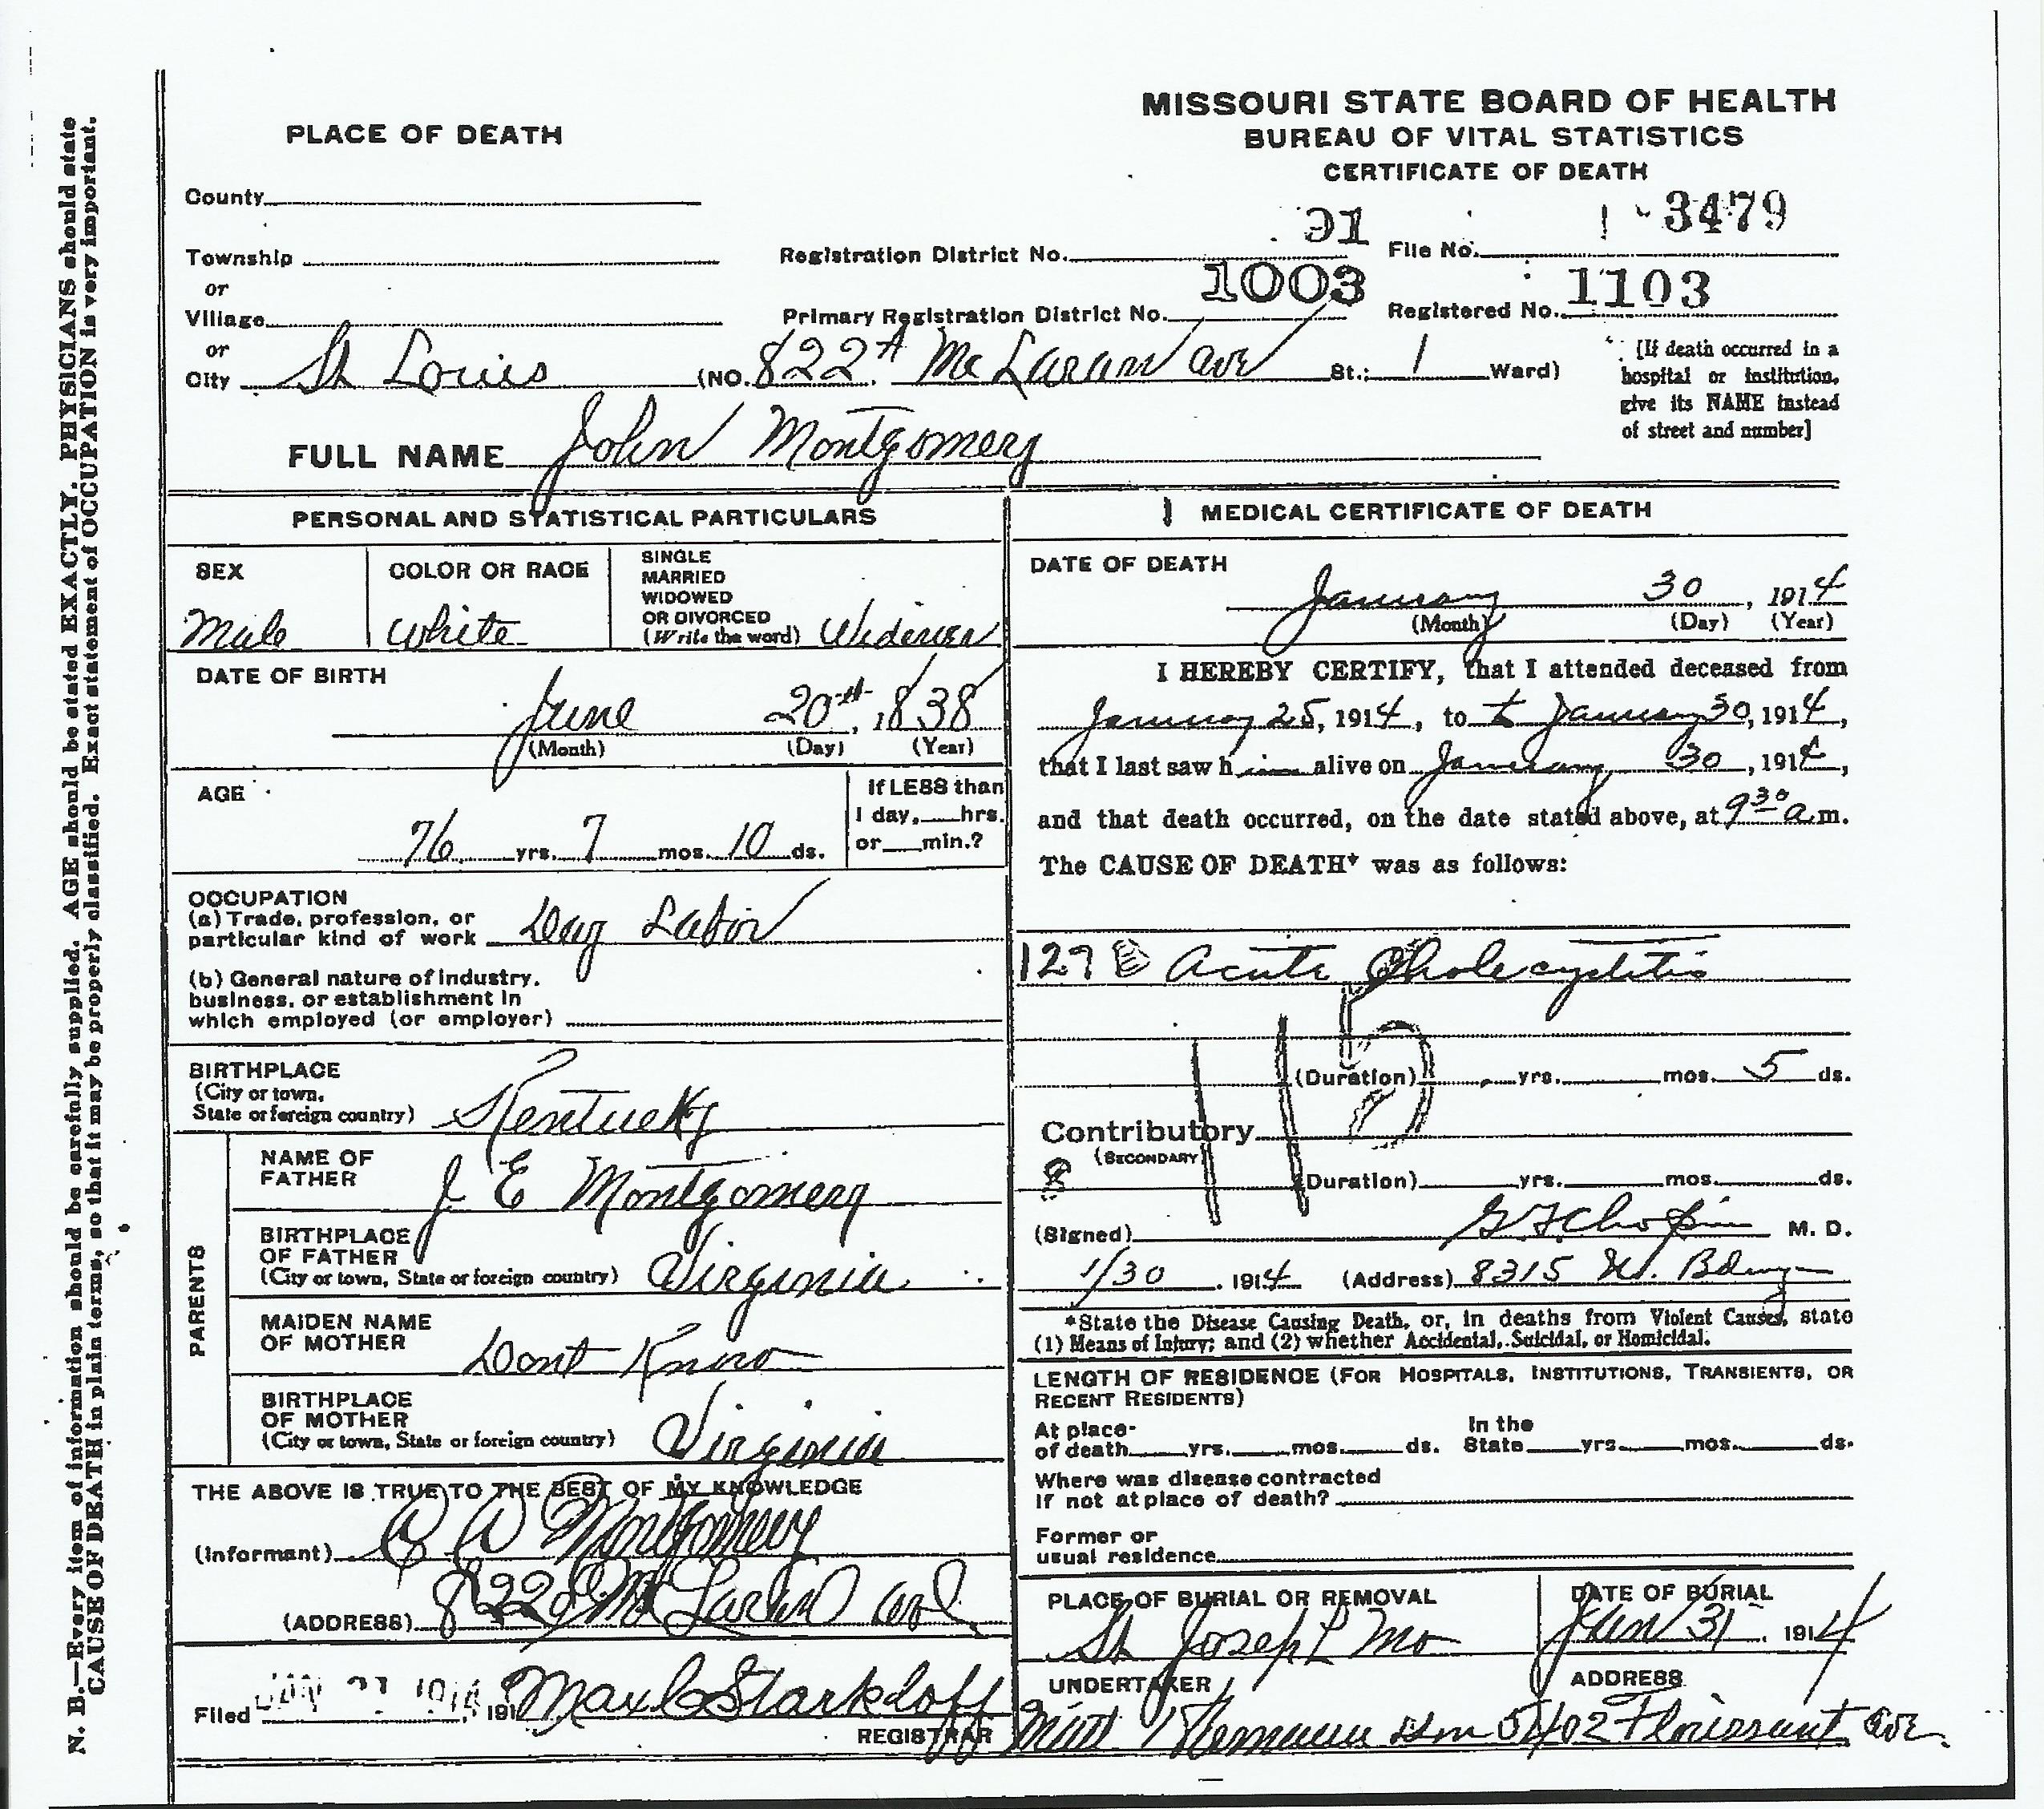 MISSOURI STATE BOARD OF HEALTH
BUREAU OF VITAL STATISTICS
CERTIFICATE OF DEATH
PLACE OF DEATH
County
Township
or
Village
or
City St Louis (NO. 822A McLaran ave St.; 1 Ward)
Registration District No. 91 File No. 3479
Primary Registration District No. 1003 Registered No. 1103
[If death occurred in a
hospital or institution,
give its NAME instead
of street and number]
FULL NAME John Montgomery
PERSONAL AND STATISTICAL PARTICULARS
SEX
Male
COLOR OR RACE
White
SINGLE
MARRIED
WIDOWED
OR DIVORCED
(Write the word) Widower
DATE OF BIRTH
June 20th, 1838
(Month) (Day) (Year)
AGE
76 yrs. 7 mos. 10 ds.
If LESS than
1 day, hrs.
or min.?
OCCUPATION
(a) Trade, profession, or
particular kind of work Day Labor
(b) General nature of industry,
business, or establishment in
which employed (or employer)
BIRTHPLACE
(City or town,
State or foreign country) Kentucky
PARENTS
NAME OF
FATHER J E Montgomery
BIRTHPLACE
OF FATHER
(City or town, State or foreign country) Virginia
MAIDEN NAME
OF MOTHER Dont Know
BIRTHPLACE
OF MOTHER
(City or town, State or foreign country) Virginia
THE ABOVE IS TRUE TO THE BEST OF MY KNOWLEDGE
(Informant) Montgomery
(ADDRESS) 822 McLaran ave
Filed 1914, 191 Max C Starkloff
REGISTRAR
MEDICAL CERTIFICATE OF DEATH
DATE OF DEATH
January 30, 1914
(Month) (Day) (Year)
I HEREBY CERTIFY, that I attended deceased from
January 25, 1914, to January 30, 1914,
that I last saw him alive on January 30, 1914,
and that death occurred, on the date stated above, at 9 30 a.m.
The CAUSE OF DEATH* was as follows:
127 B Acute Cholecystitis
115
(Duration) yrs. mos. 5 ds.
Contributory
(SECONDARY)
(Duration) yrs. mos. ds.
(Signed) G F Chopin M. D.
1/30, 1914 (Address) 8315 N.
*State the Disease Causing Death, or, in deaths from Violent Causes, state
(1) Means of Injury; and (2) whether Accidental, Suicidal, or Homicidal.
LENGTH OF RESIDENCE (FOR HOSPITALS, INSTITUTIONS, TRANSIENTS, OR
RECENT RESIDENTS)
At place
of death yrs. mos. ds.
In the
State yrs. mos. ds.
Where was disease contracted
if not at place of death?
Former or
usual residence
PLACE OF BURIAL OR REMOVAL
St Joseph Mo
DATE OF BURIAL
Jan 31, 1914
UNDERTAKER
ADDRESS
5402 Florissant ave
N. B.—Every item of information should be carefully supplied. AGE should be stated EXACTLY. PHYSICIANS should state
CAUSE OF DEATH in plain terms, so that it may be properly classified. Exact statement of OCCUPATION is very important.